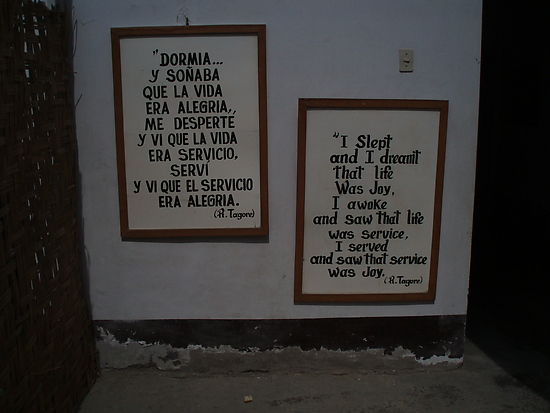 "DORMIA...
Y SOÑABA
QUE LA VIDA
ERA ALEGRIA,,
ME DESPERTE
Y VI QUE LA VIDA
ERA SERVICIO,
SERVÍ
Y VI QUE EL SERVICIO
ERA ALEGRIA.
(R. Tagore)
"I Slept
and I dreamt
that life
Was Joy,
I awoke
and saw that life
was service,
I served
and saw that service
was Joy.
(R. Tagore)